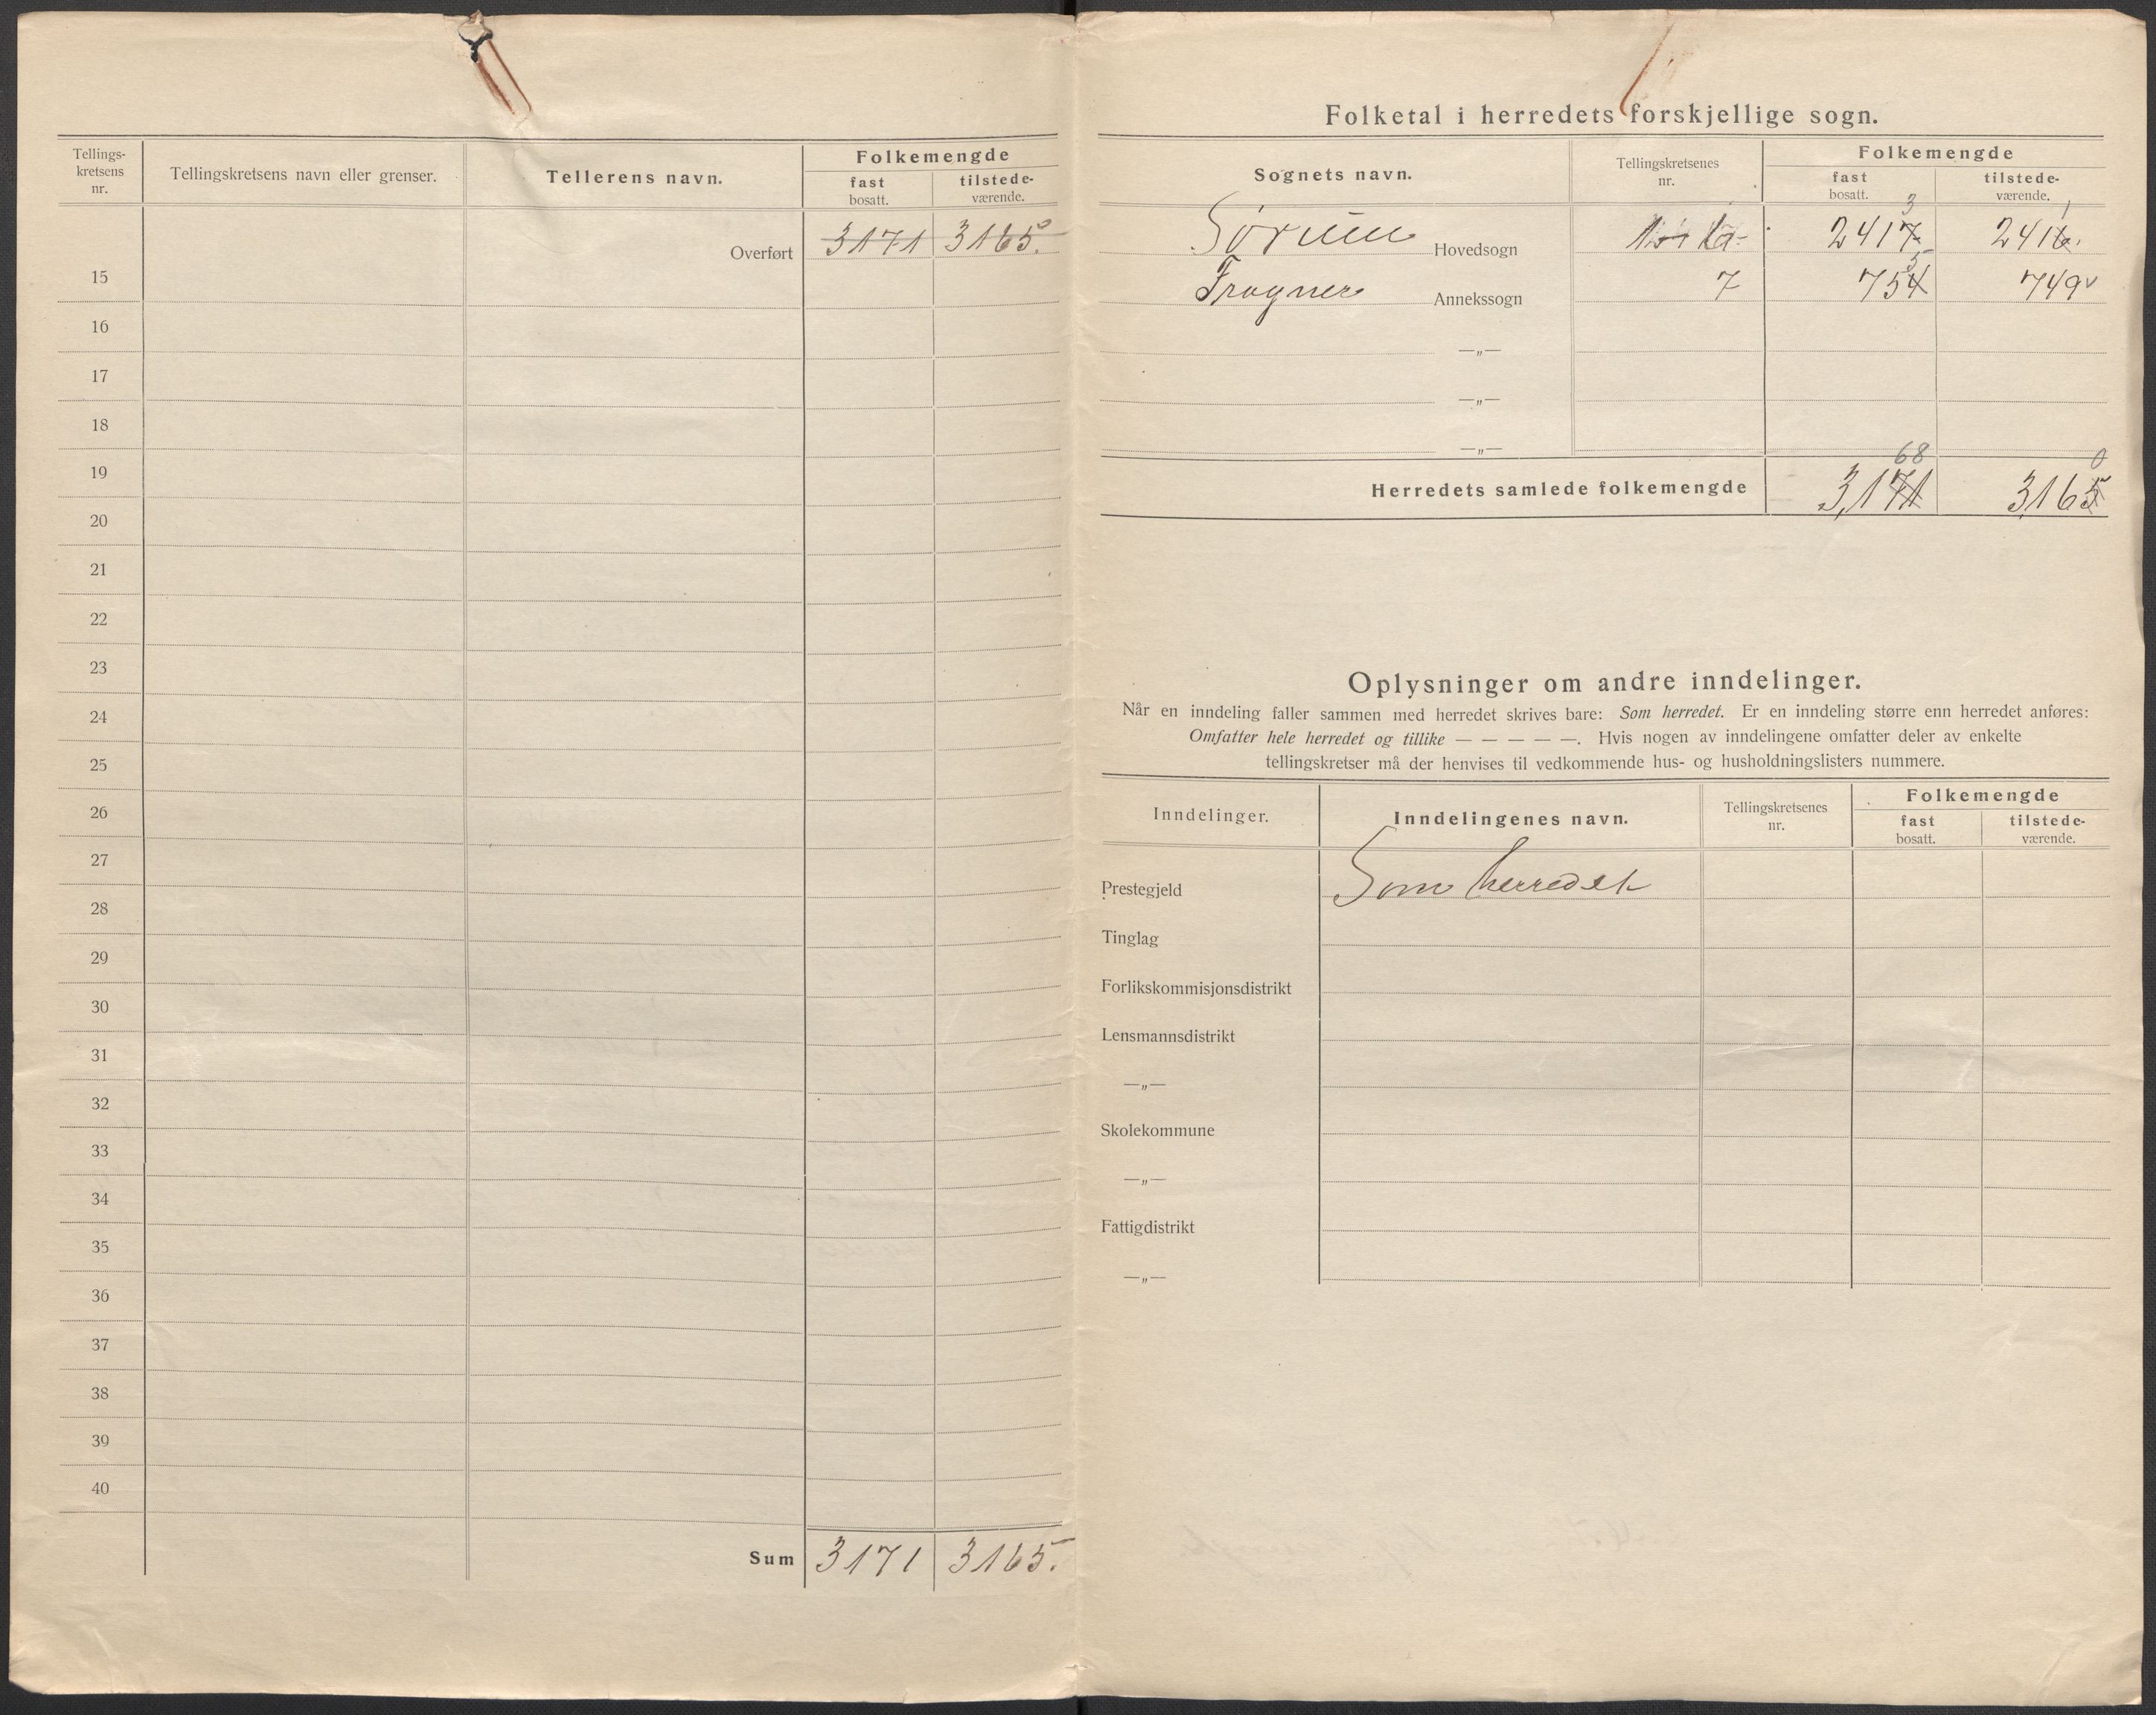 Tellings-
kretsens
nr.
Tellingskretsens navn eller grenser.
Tellerens navn.
Folkemengde
fast
bosatt.
tilstede-
værende.
Overført 3171 3165.
15
16
17
18
19
20
21
22
23
24
25
26
27
28
29
30
31
32
33
34
35
36
37
38
39
40
Sum 3171 3165.
Folketal i herredets forskjellige sogn.
Sognets navn.
Tellingskretsenes
nr.
Folkemengde
fast
bosatt.
tilstede-
værende.
3 1
Sørum Hovedsogn 2417 2416.
5
Frogner Annekssogn 7 754 749
—„—
—„—
—„—
68 0
Herredets samlede folkemengde 3,171 3,165
Oplysninger om andre inndelinger.
Når en inndeling faller sammen med herredet skrives bare: Som herredet. Er en inndeling større enn herredet anføres:
Omfatter hele herredet og tillike — — — — —. Hvis nogen av inndelingene omfatter deler av enkelte
tellingskretser må der henvises til vedkommende hus- og husholdningslisters nummere.
Inndelinger.
Inndelingenes navn.
Tellingskretsenes
nr.
Folkemengde
fast
bosatt.
tilstede-
værende.
Prestegjeld Som herredet
Tinglag
Forlikskommisjonsdistrikt
Lensmannsdistrikt
—„—
Skolekommune
—„—
Fattigdistrikt
—„—